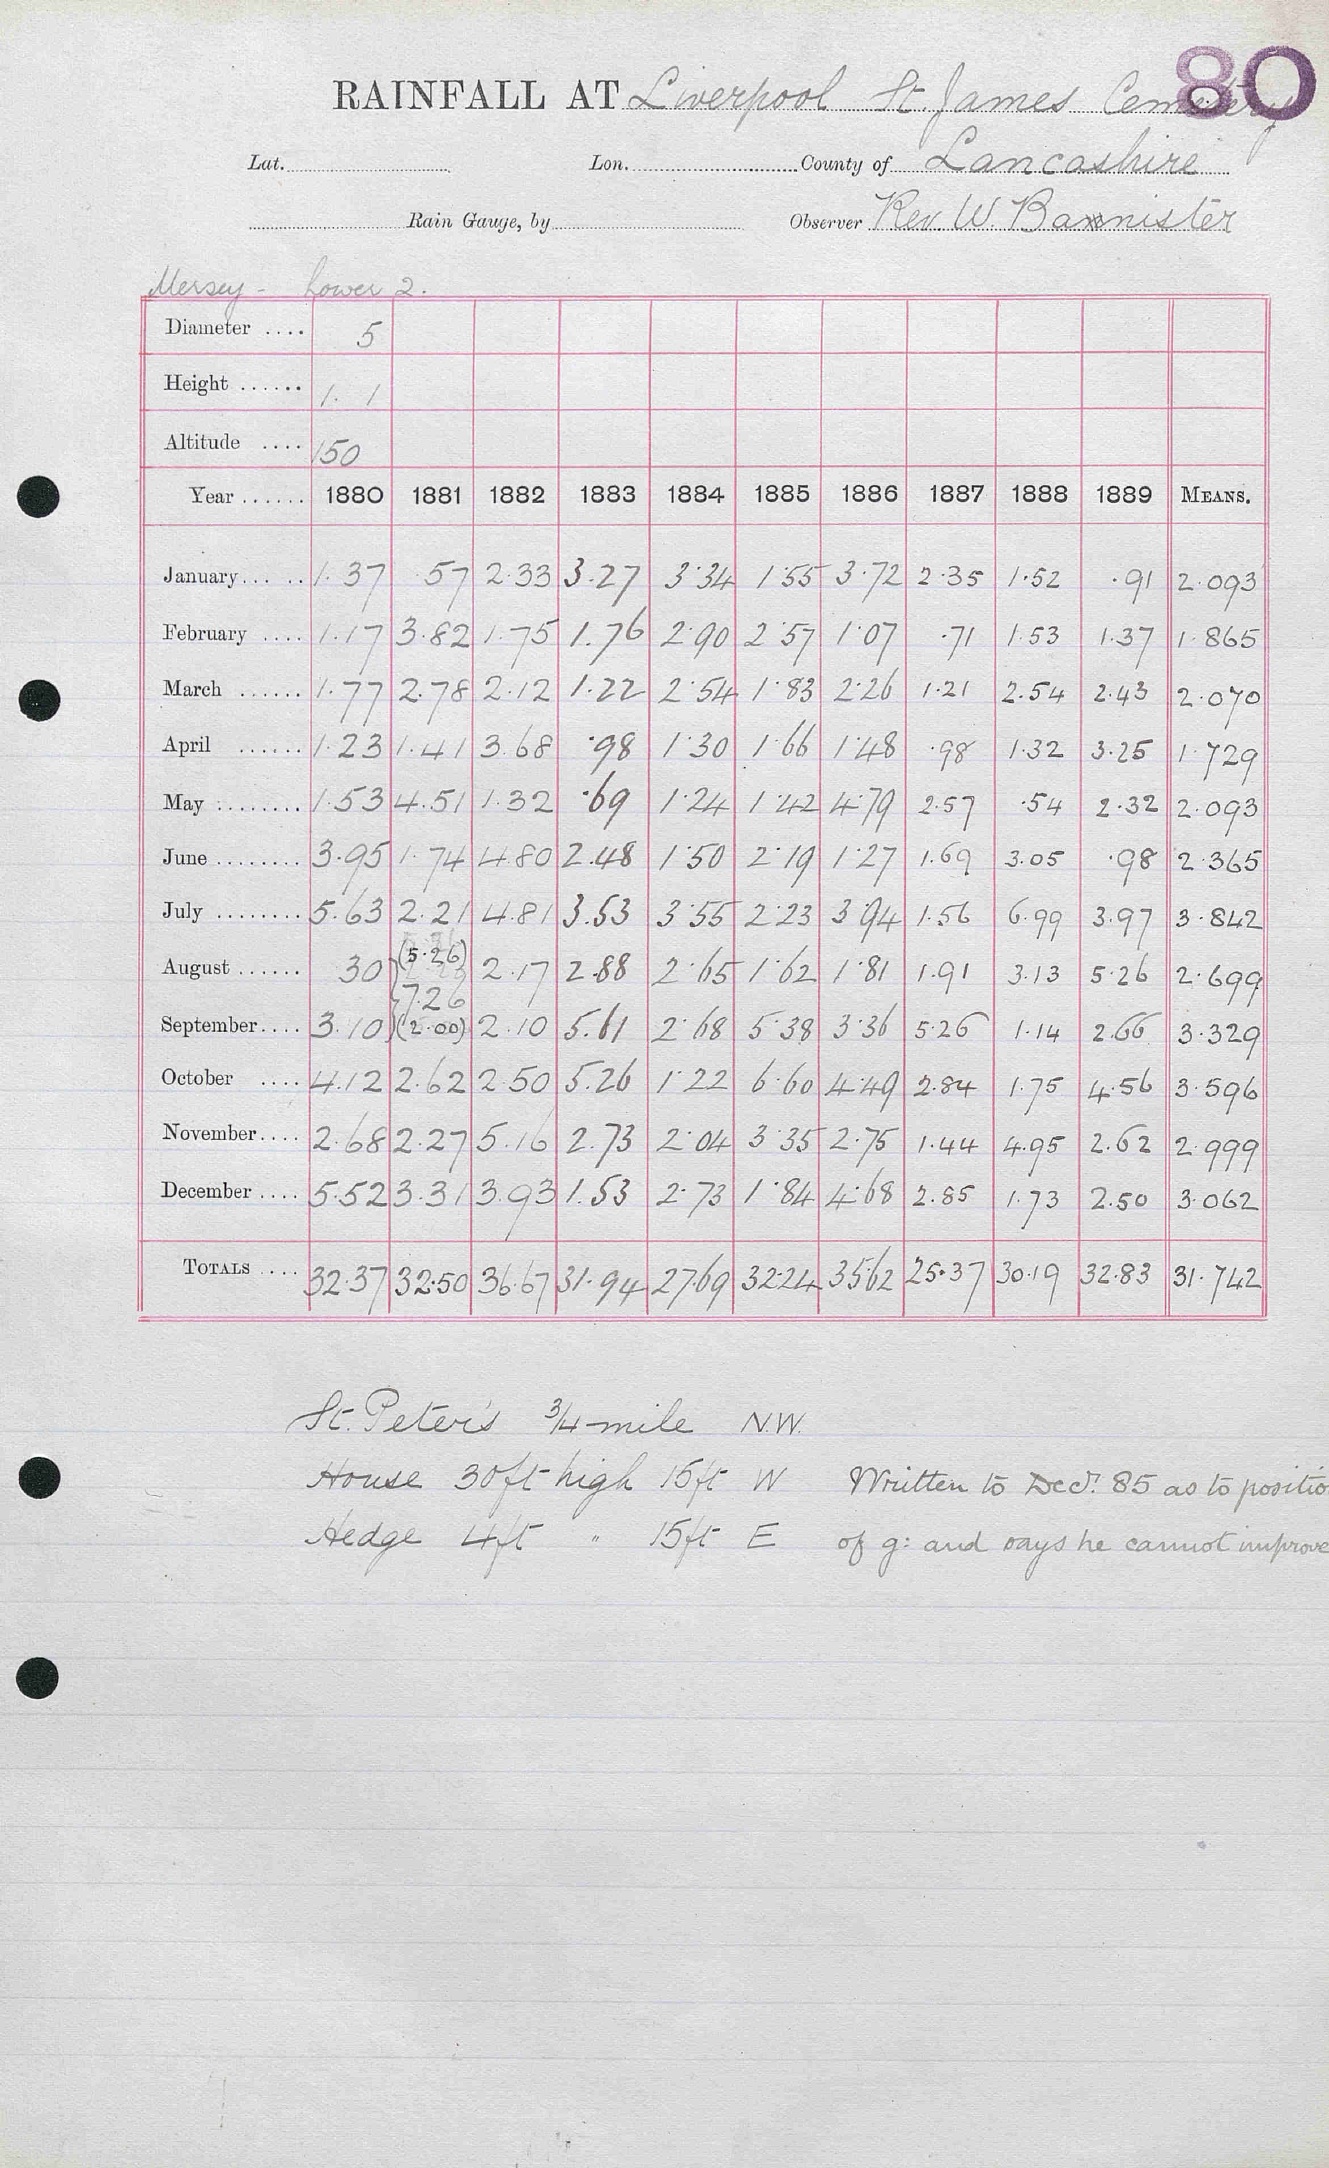 80
RAINFALL AT Liverpool St. James Cemetery
Lat. Lon. County of Lancashire
Rain Gauge, by Observer Rev. W. Bannister
Mersey - Lower 2.
Diameter .... 5
Height ...... 1. 1
Altitude .... 150
Year ...... 1880 1881 1882 1883 1884 1885 1886 1887 1888 1889 MEANS.
January... .. 1.37 .57 2.33 3.27 3.34 1.55 3.72 2.35 1.52 .91 2.093
February .... 1.17 3.82 1.75 1.76 2.90 2.57 1.07 .71 1.53 1.37 1.865
March ...... 1.77 2.78 2.12 1.22 2.54 1.83 2.26 1.21 2.54 2.43 2.070
April ...... 1.23 1.41 3.68 .98 1.30 1.66 1.48 .98 1.32 3.25 1.729
May ........ 1.53 4.51 1.32 .69 1.24 1.42 4.79 2.57 .54 2.32 2.093
June ........ 3.95 1.74 4.80 2.48 1.50 2.19 1.27 1.69 3.05 .98 2.365
July ........ 5.63 2.21 4.81 3.53 3.55 2.23 3.94 1.56 6.99 3.97 3.842
August ...... 30 (5.26) 2.17 2.88 2.65 1.62 1.81 1.91 3.13 5.26 2.699
7.26
September.... 3.10 (2.00) 2.10 5.61 2.68 5.38 3.36 5.26 1.14 2.66 3.329
October .... 4.12 2.62 2.50 5.26 1.22 6.60 4.49 2.84 1.75 4.56 3.596
November.... 2.68 2.27 5.16 2.73 2.04 3.35 2.75 1.44 4.95 2.62 2.999
December .... 5.52 3.31 3.93 1.53 2.73 1.84 4.68 2.85 1.73 2.50 3.062
TOTALS .... 32.37 32.50 36.67 31.94 27.69 32.24 35.62 25.37 30.19 32.83 31.742
St. Peter's 3/4 mile N.W.
House 30ft high 15ft W Written to Decr. 85 as to positio
Hedge 4ft " 15ft E of g: and says he cannot improve